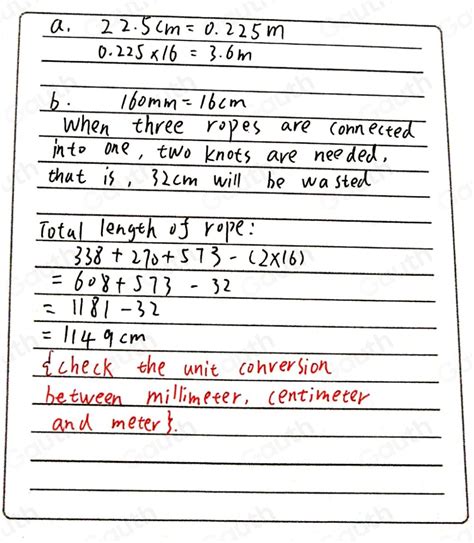 a. 22.5cm = 0.225m
0.225×16 = 3.6m
b. 160mm = 16cm
When three ropes are connected
into one, two knots are needed,
that is, 32cm will be wasted
Total length of rope:
338 + 270 + 573 - (2×16)
= 608 + 573 - 32
= 1181 - 32
= 1149cm
{check the unit conversion
between millimeter, centimeter
and meter}.